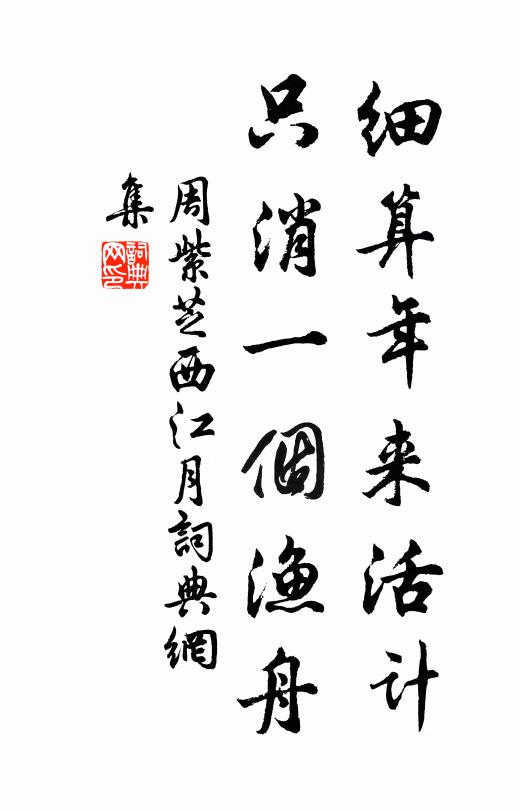 细算年来活计
只消一個漁舟
周紫芝西江月詞典網
集
詞典網印